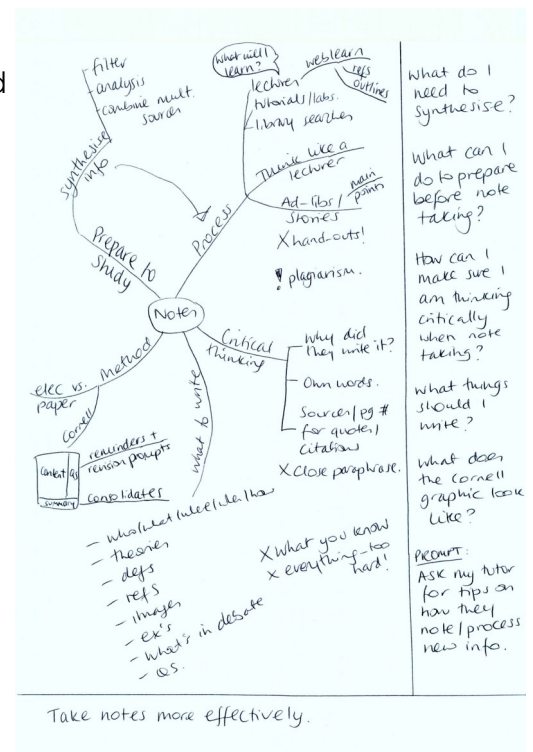 d
filter
analysis
combine mult.
sources
synthesise
info
Prepare to
study
What will I
learn?
weblearn
refs
outlines
lectures
tutorials/labs.
library searches
Think like a
lecturer
Ad-libs/
stories
main
points
X hand-outs!
! plagiarism.
Process
Notes
Critical
thinking
Why did
they write it?
Own words.
Sources/pg #
for quotes/
citations
X Close paraphrase.
Method
elec vs.
paper
Cornell
content
Qs
summary
reminders +
revision prompts
consolidates
what to write
- who/what/where/when/how
- theories
- defs
- refs
- images
- ex's
- what's in debate
- QS.
X what you know
X everything - too
hard!
What do I
need to
synthesise?
What can I
do to prepare
before note
taking?
How can I
make sure I
am thinking
critically
when note
taking?
What things
should I
write?
What does
the cornell
graphic look
like?
PROMPT:
ASK my tutor
for tips on
how they
note/process
new info.
Take notes more effectively.